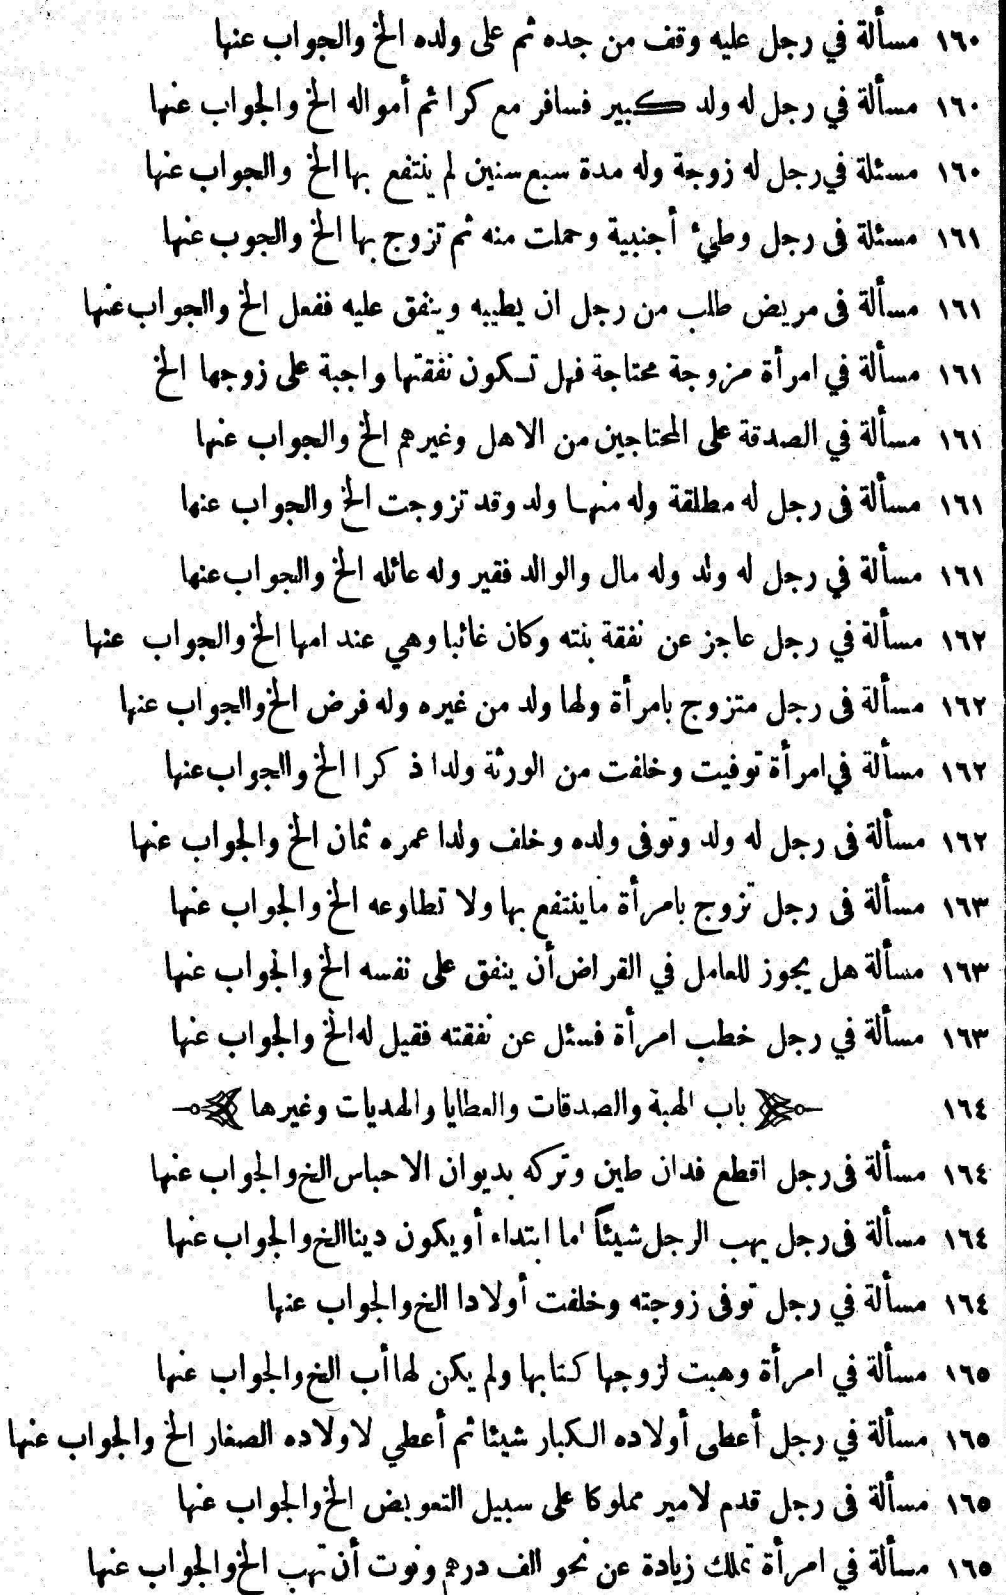 ١٦٠ مسألة في رجل عليه وقف من جده ثم على ولده الخ والجواب عنها
١٦٠ مسألة في رجل له ولد كبير فسافر مع كرا ثم أمواله الخ والجواب عنها
١٦٠ مسئلة في رجل له زوجة وله مدة سبع سنين لم ينتفع بها الخ والجواب عنها
١٦١ مسئلة فى رجل وطيء أجنبية وحملت منه ثم تزوج بها الخ والجوب عنها
١٦١ مسألة فى مريض طلب من رجل ان يطيبه وينفق عليه ففعل الخ والجواب عنها
١٦١ مسألة في امرأة مزوجة محتاجة فهل تكون نفقتها واجبة على زوجها الخ
١٦١ مسألة في الصدقة على المحتاجين من الاهل وغيرهم الخ والجواب عنها
١٦١ مسألة فى رجل له مطلقة وله منها ولد وقد تزوجت الخ والجواب عنها
١٦١ مسألة في رجل له ولد وله مال والوالد فقير وله عائله الخ والجواب عنها
١٦٢ مسألة في رجل عاجز عن نفقة بنته وكان غائبا وهي عند امها الخ والجواب عنها
١٦٢ مسألة فى رجل متزوج بامرأة ولها ولد من غيره وله فرض الخ والجواب عنها
١٦٢ مسألة في امرأة توفيت وخلفت من الورثة ولدا ذكرا الخ والجواب عنها
١٦٢ مسألة فى رجل له ولد وتوفى ولده وخلف ولدا عمره ثمان الخ والجواب عنها
١٦٣ مسألة فى رجل تزوج بامرأة ماينتفع بها ولا تطاوعه الخ والجواب عنها
١٦٣ مسألة هل يجوز للعامل في القراض أن ينفق على نفسه الخ والجواب عنها
١٦٣ مسألة في رجل خطب امرأة فسئل عن نفقته فقيل له الخ والجواب عنها
١٦٤ باب الهبة والصدقات والعطايا والهديات وغيرها
١٦٤ مسألة فى رجل اقطع فدان طين وتركه بديوان الاحباس الخ والجواب عنها
١٦٤ مسألة فى رجل يهب الرجل شيئاً اما ابتداء أويكون دينا الخ والجواب عنها
١٦٤ مسألة في رجل توفى زوجته وخلفت أولادا الخ والجواب عنها
١٦٥ مسألة في امرأة وهبت لزوجها كتابها ولم يكن لها أب الخ والجواب عنها
١٦٥ مسألة في رجل أعطى أولاده الكبار شيئا ثم أعطي لاولاده الصغار الخ والجواب عنها
١٦٥ مسألة فى رجل قدم لامير مملوكا على سبيل التعويض الخ والجواب عنها
١٦٥ مسألة في امرأة تملك زيادة عن نحو الف درهم ونوت أن تهب الخ والجواب عنها